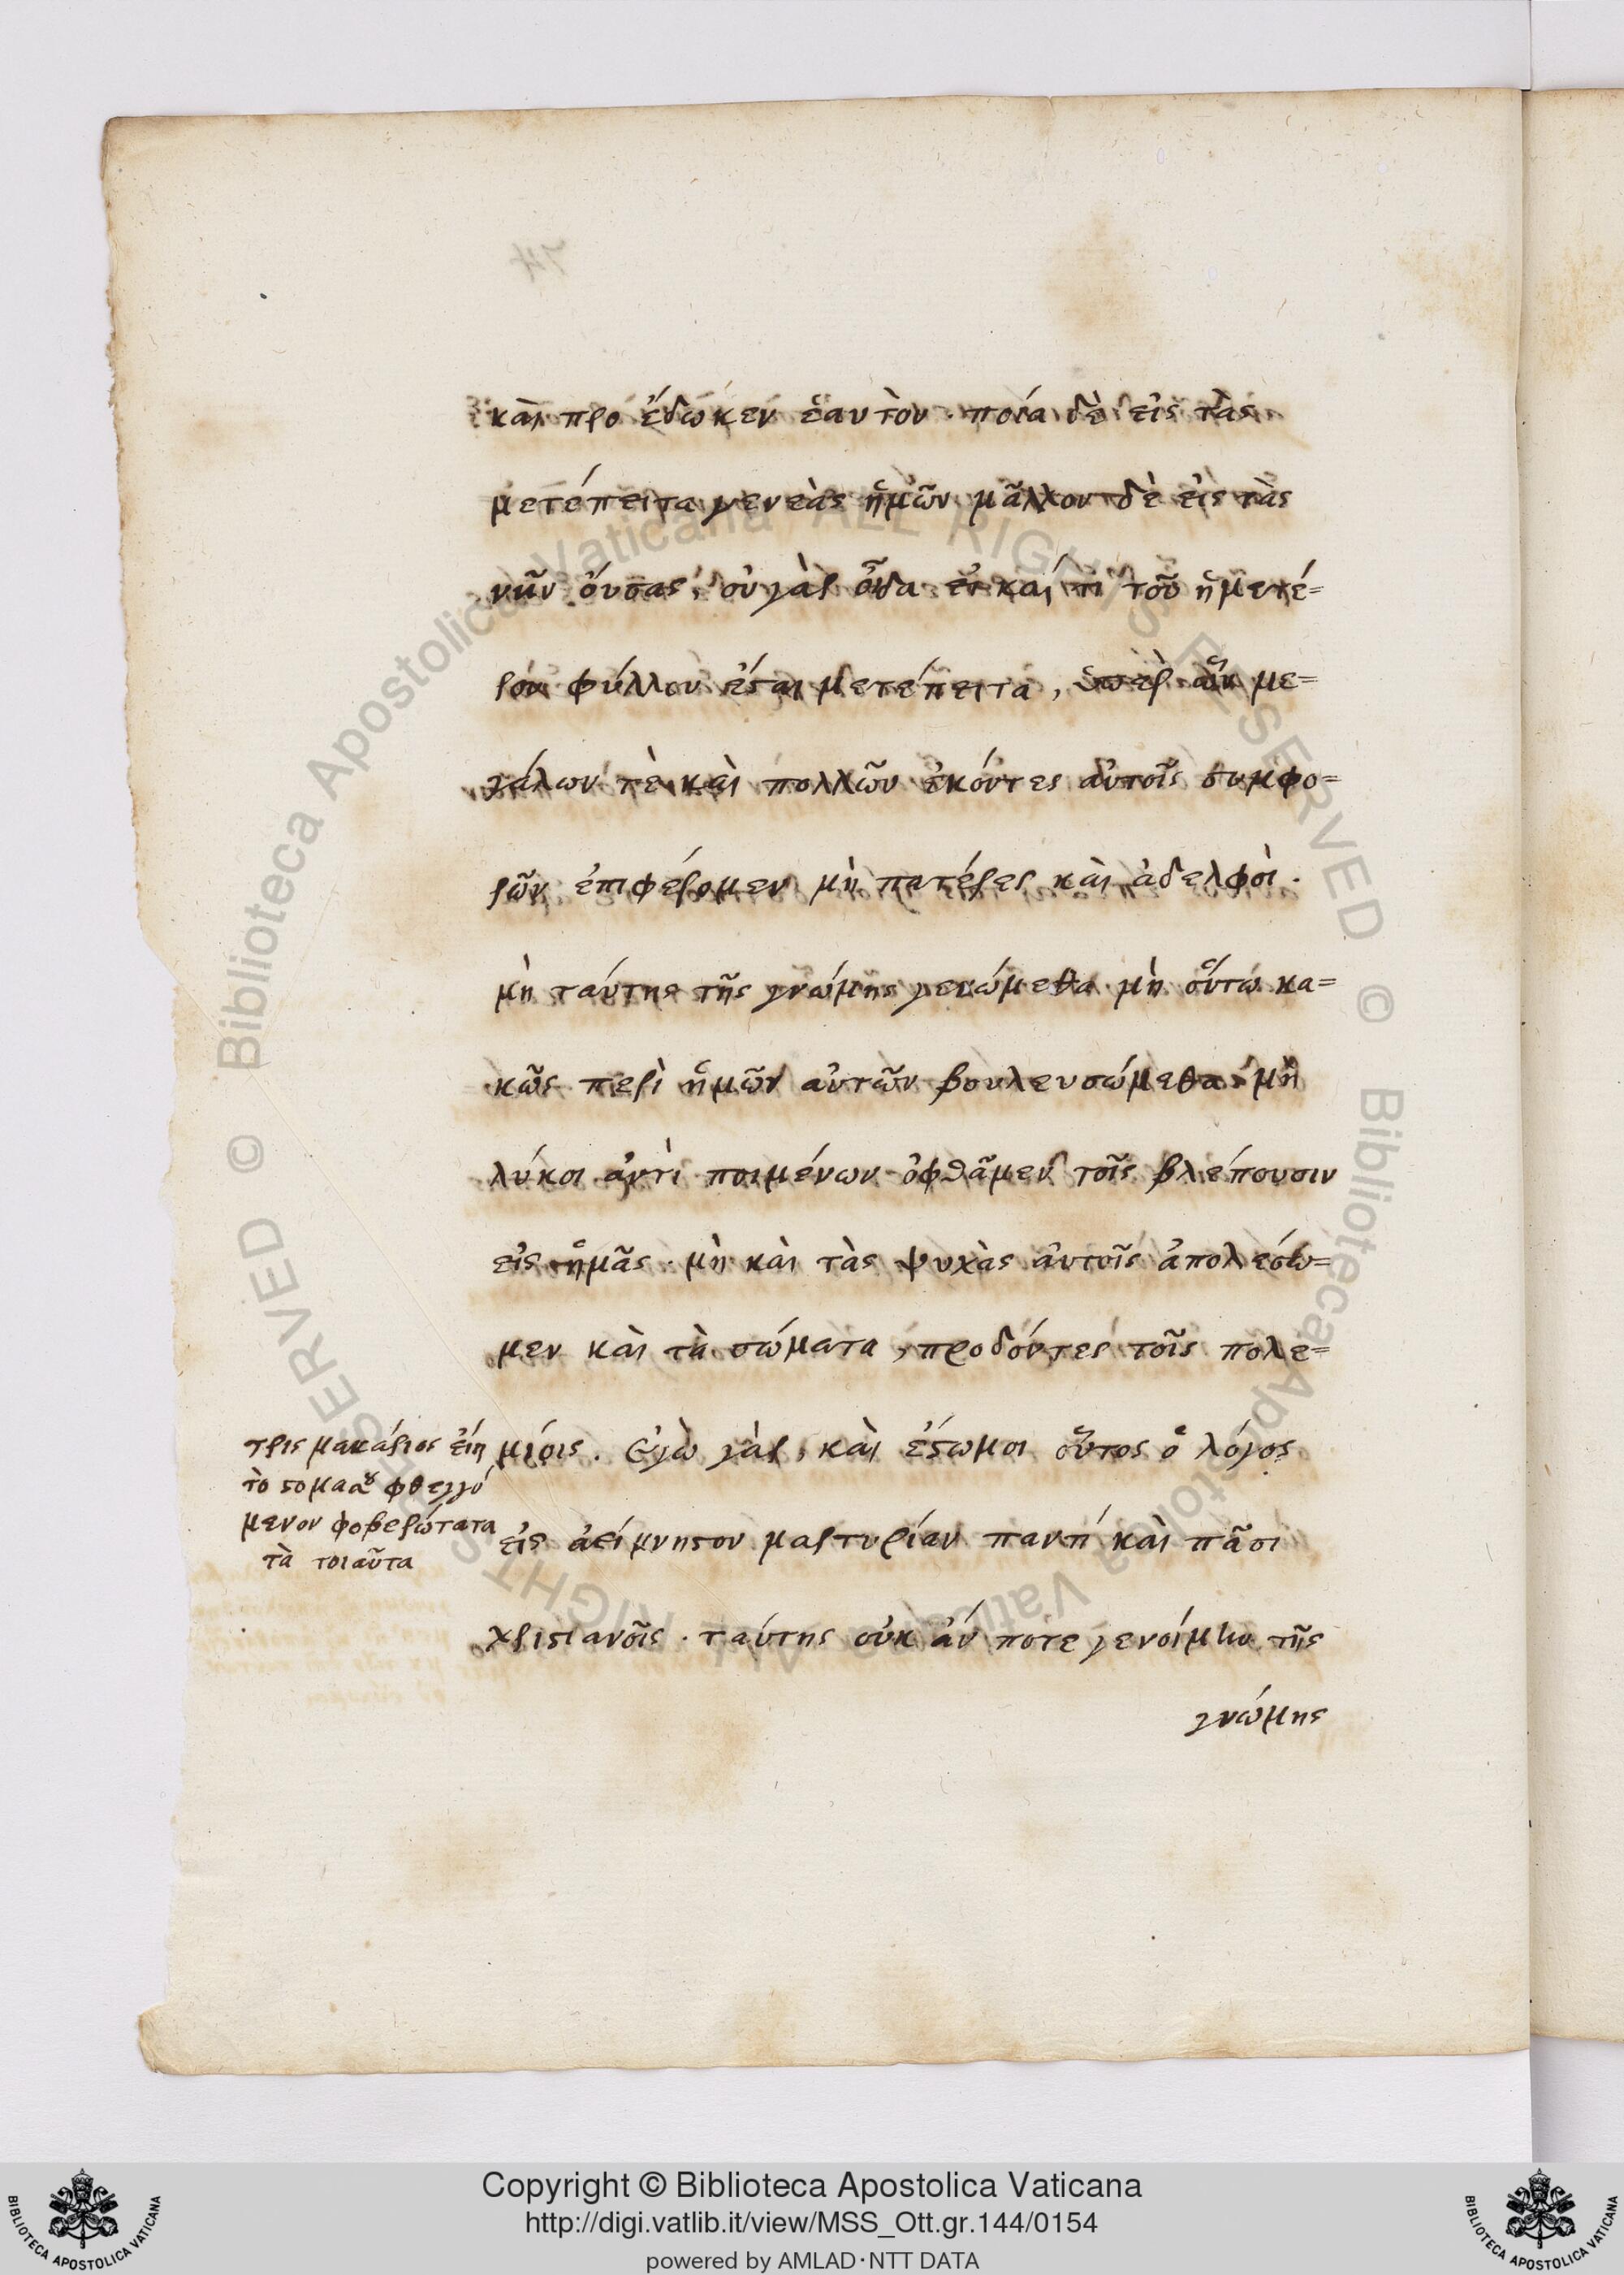 καὶ προέδωκεν ἑαυτὸν· ποία δὲ εἰς τὰς
μετέπειτα γενεὰς ἡμῶν μᾶλλον δὲ εἰς τὰς
νῦν όυσας, οὐ γὰρ οἶδα εἰ καί τι τοῦ ἡμετέ=
ρου φύλλου ἔσται μετέπειτα, ὑπὲρ ὧν με=
γάλων τὲ καὶ πολλῶν ἑκόντες αὑτοῖς συμφο=
ρῶν ἐπιφέρομεν μὴ πατέρες καὶ ἀδελφοὶ.
μὴ ταύτης τῆς γνώμης γενώμεθα· μὴ οὕτω κα=
κῶς περὶ ἡμῶν αὐτῶν βουλευσώμεθα, μὴ
λύκοι ἀντὶ ποιμένων ὀφθᾶμεν τοῖς βλέπουσιν
εἰς ἡμᾶς· μὴ καὶ τὰς ψυχὰς αὐτοῖς ἀπολέσω=
μεν καὶ τὰ σώματα, προδόντες τοῖς πολε=
μίοις. Ἐγὼ γὰρ, καὶ ἔστω μοι οὗτος ὁ λόγος
εἰς ἀείμνηστον μαρτυρίαν παντί καὶ πᾶσι
χριστιανοῖς· ταύτης οὐκ ἄν ποτε γενοίμην τῆς
γνώμης
τρις μακάριος ἐίη
τὸ στομα σου φθεγγό
μενον φοβερώτατα
τὰ τοιαῦτα
74
Copyright © Biblioteca Apostolica Vaticana
http://digi.vatlib.it/view/MSS_Ott.gr.144/0154
powered by AMLAD·NTT DATA
BIBLIOTECA APOSTOLICA VATICANA
BIBLIOTECA APOSTOLICA VATICANA
© Biblioteca Apostolica Vaticana ALL RIGHTS RESERVED © Biblioteca Apostolica Vaticana ALL RIGHTS RESERVED